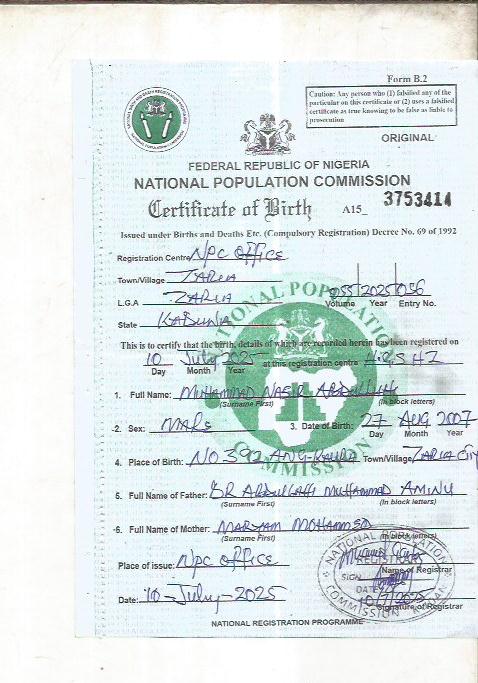 Form B.2
Caution: Any person who (1) falsified any of the
particular on this certificate or (2) uses a falsified
certificate as true knowing to be false as liable to
prosecution
ORIGINAL
FEDERAL REPUBLIC OF NIGERIA
NATIONAL POPULATION COMMISSION
Certificate of Birth A15_ 3753414
Issued under Births and Deaths Etc. (Compulsory Registration) Decree No. 69 of 1992
Registration Centre NPC OFFICE
Town/Village ZARIA 055 2025 056
L.G.A ZARIA Volume Year Entry No.
State KADUNA
This is to certify that the birth, details of which are recorded herein has been registered on
10 July 2025 at this registration centre
Day Month Year
1. Full Name: MUHAMMAD NASIR ABDULLAHI
(Surname First) (In block letters)
2. Sex: MALE 3. Date of Birth: 27 AUG 2007
Day Month Year
4. Place of Birth: NO 392 Town/Village ZARIA City
5. Full Name of Father: DR ABDULLAHI MUHAMMAD AMINU
(Surname First) (In block letters)
6. Full Name of Mother: MARYAM MOHAMMED
(Surname First) (In block letters)
Place of issue: NPC OFFICE
Name of Registrar
Date: 10-July-2025
Signature of Registrar
NATIONAL REGISTRATION PROGRAMME
NATIONAL POPULATION COMMISSION
REGISTRAR
SIGN
DATE 10/7/2025